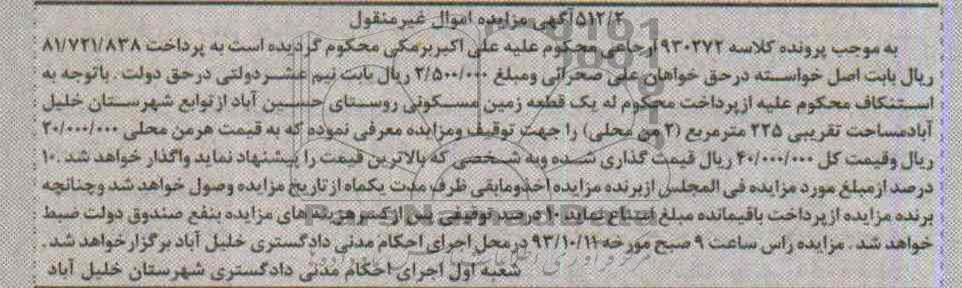 ۵۱۲/۲ آگهی مزایده اموال غیرمنقول
به موجب پرونده کلاسه ۹۳۰۲۷۲ ارجاعی محکوم علیه علی اکبر برمکی محکوم گردیده است به پرداخت ۸۱/۷۲۱/۸۳۸
ریال بابت اصل خواسته در حق خواهان علی صحرائی ومبلغ ۲/۵۰۰/۰۰۰ ریال بابت نیم عشر دولتی در حق دولت . باتوجه به
استنکاف محکوم علیه از پرداخت محکوم له یک قطعه زمین مسکونی روستای حسین آباد از توابع شهرستان خلیل
آباد مساحت تقریبی ۲۲۵ مترمربع (۲ من محلی) را جهت توقیف ومزایده معرفی نموده که به قیمت هر من محلی ۲۰/۰۰۰/۰۰۰
ریال وقیمت کل ۴۰/۰۰۰/۰۰۰ ریال قیمت گذاری شده وبه شخصی که بالاترین قیمت را پیشنهاد نماید واگذار خواهد شد .۱۰
درصد از مبلغ مورد مزایده فی المجلس از برنده مزایده اخذ ومابقی ظرف مدت یکماه از تاریخ مزایده وصول خواهد شد وچنانچه
برنده مزایده از پرداخت باقیمانده مبلغ امتناع نماید ۱۰ درصد توقیفی پس از کسر هزینه های مزایده بنفع صندوق دولت ضبط
خواهد شد . مزایده راس ساعت ۹ صبح مورخه ۹۳/۱۰/۱۱ در محل اجرای احکام مدنی دادگستری خلیل آباد برگزار خواهد شد .
شعبه اول اجرای احکام مدنی دادگستری شهرستان خلیل آباد